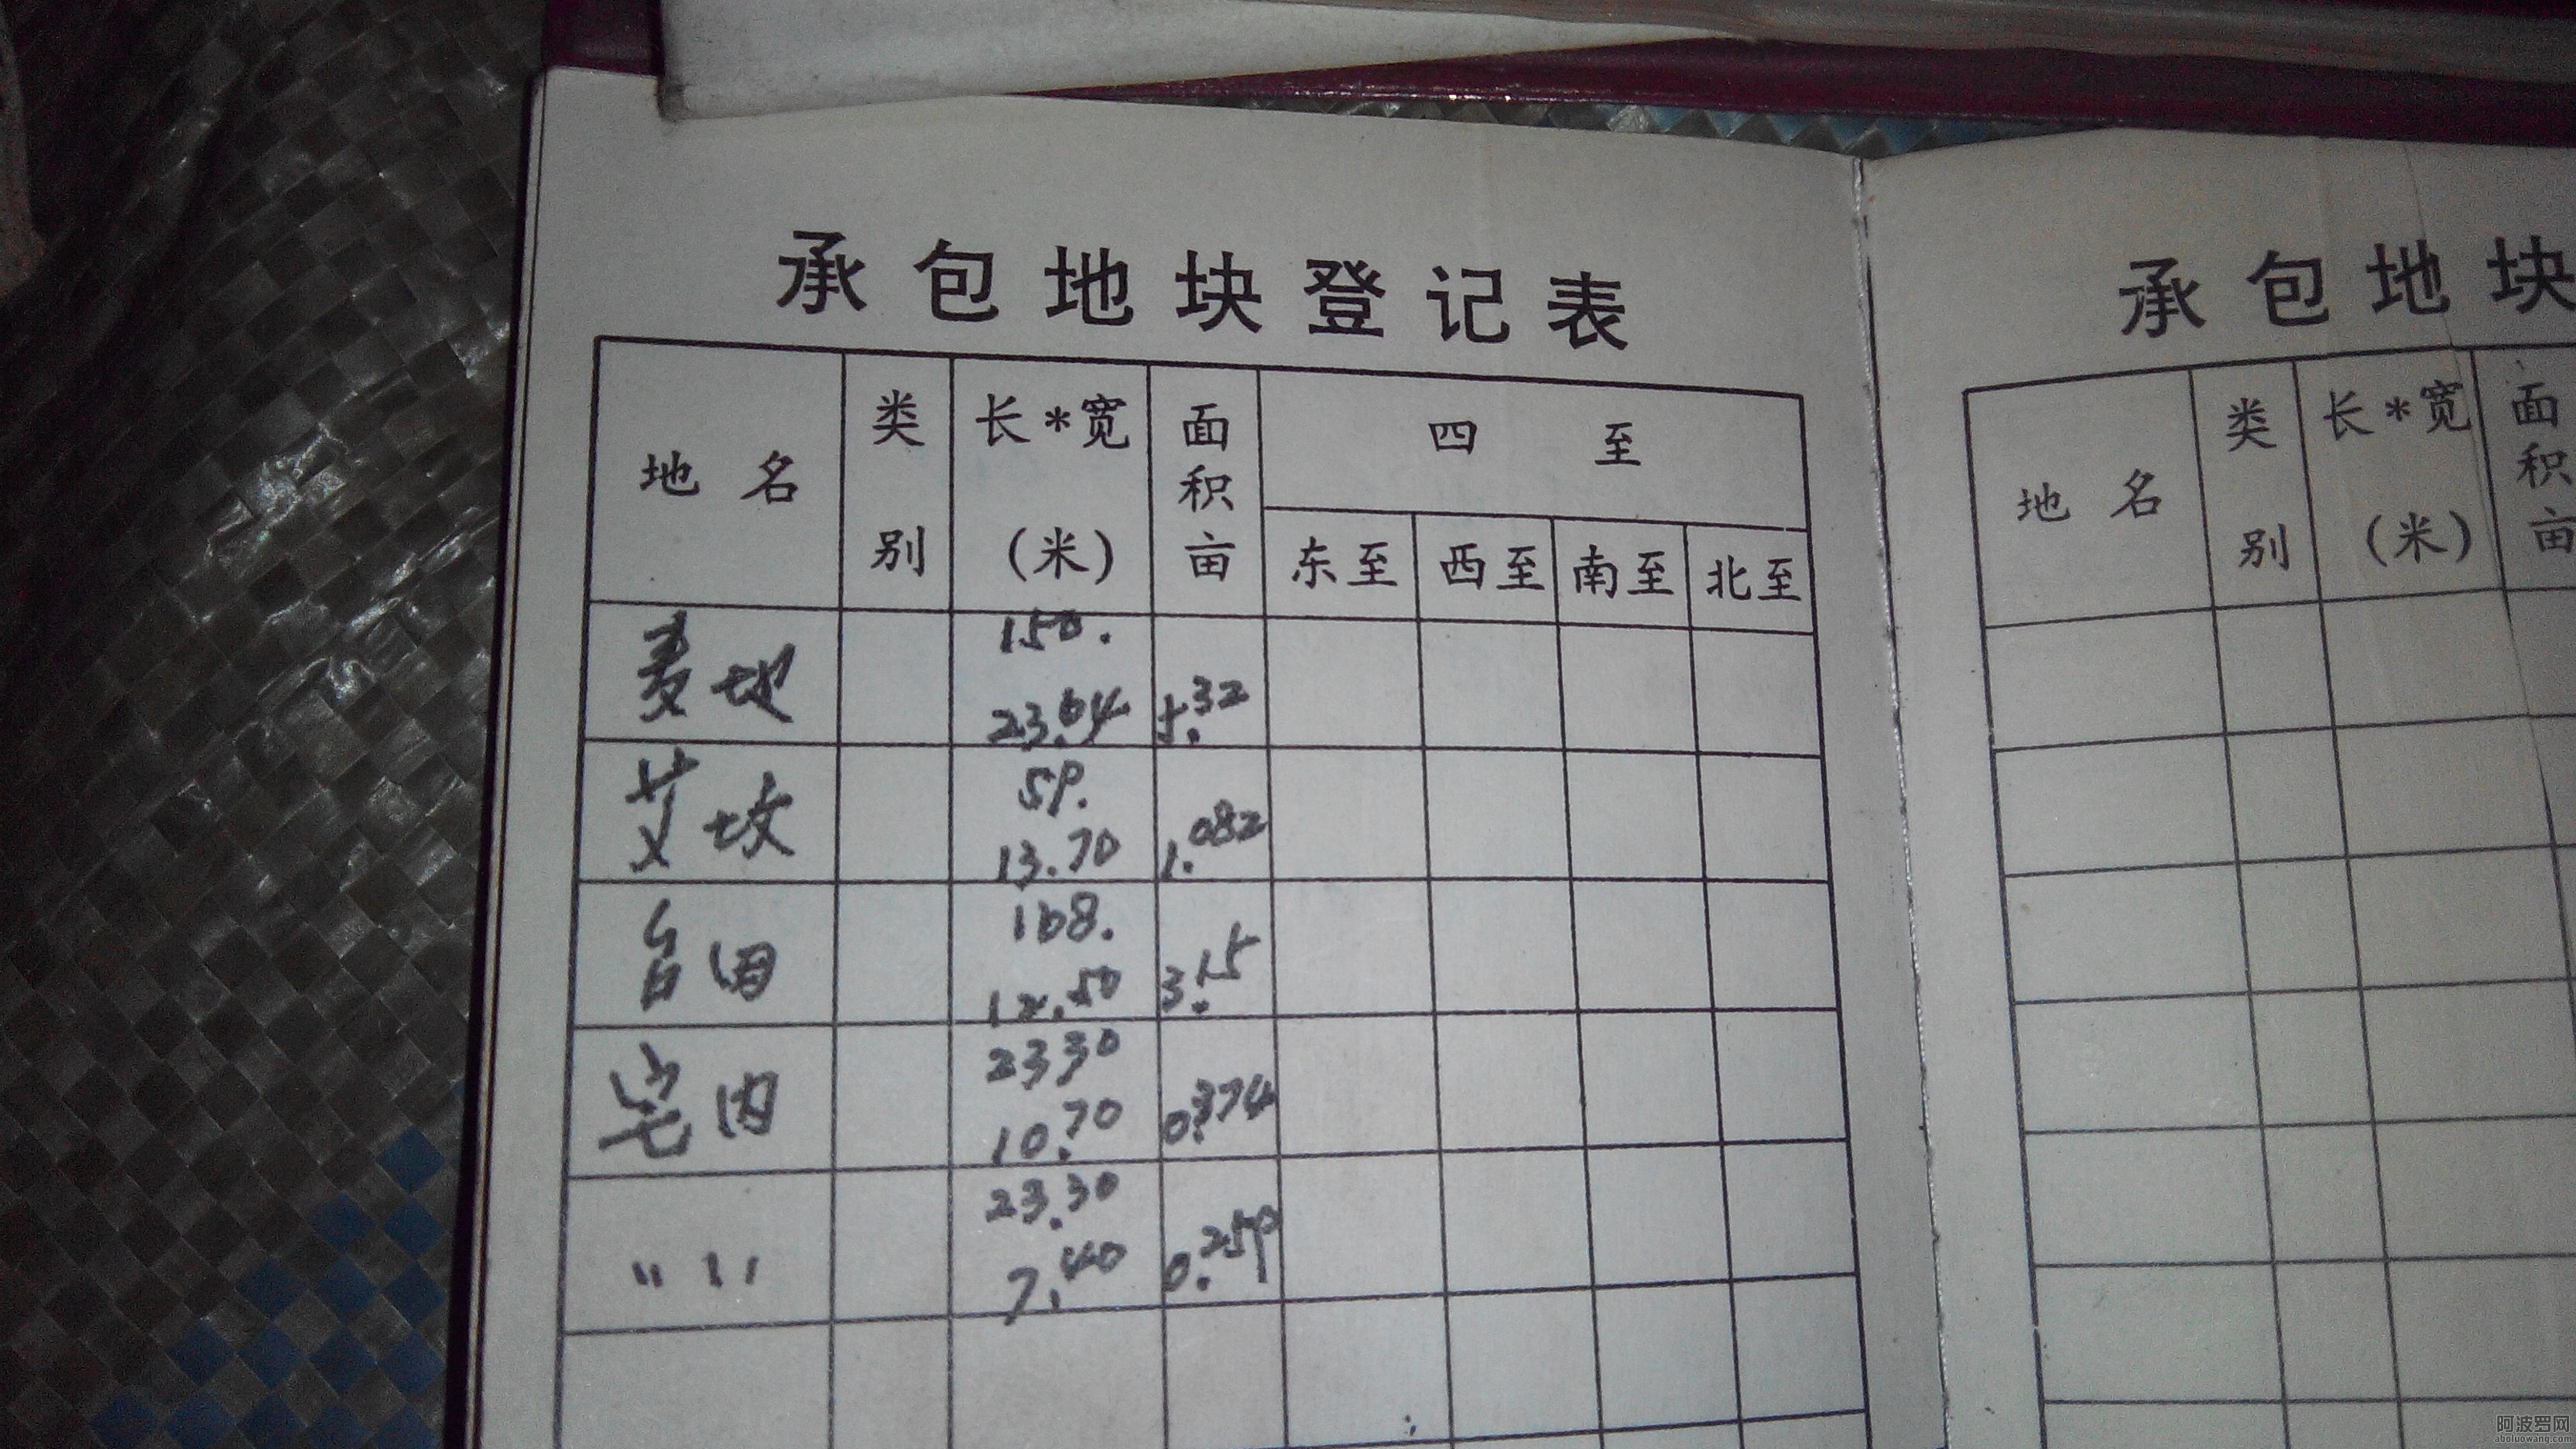 承包地块登记表
地名 类别 长*宽(米) 面积亩 四至
东至 西至 南至 北至
麦地 150. 23.64 5.32
艾坟 59. 13.70 1.082
台田 168. 12.50 3.15
宅内 2330 10.70 0.374
" " 23.30 7.40 0.259
承包地块
地名 类别 长*宽(米) 面积亩
阿波罗网
aboluowang.com